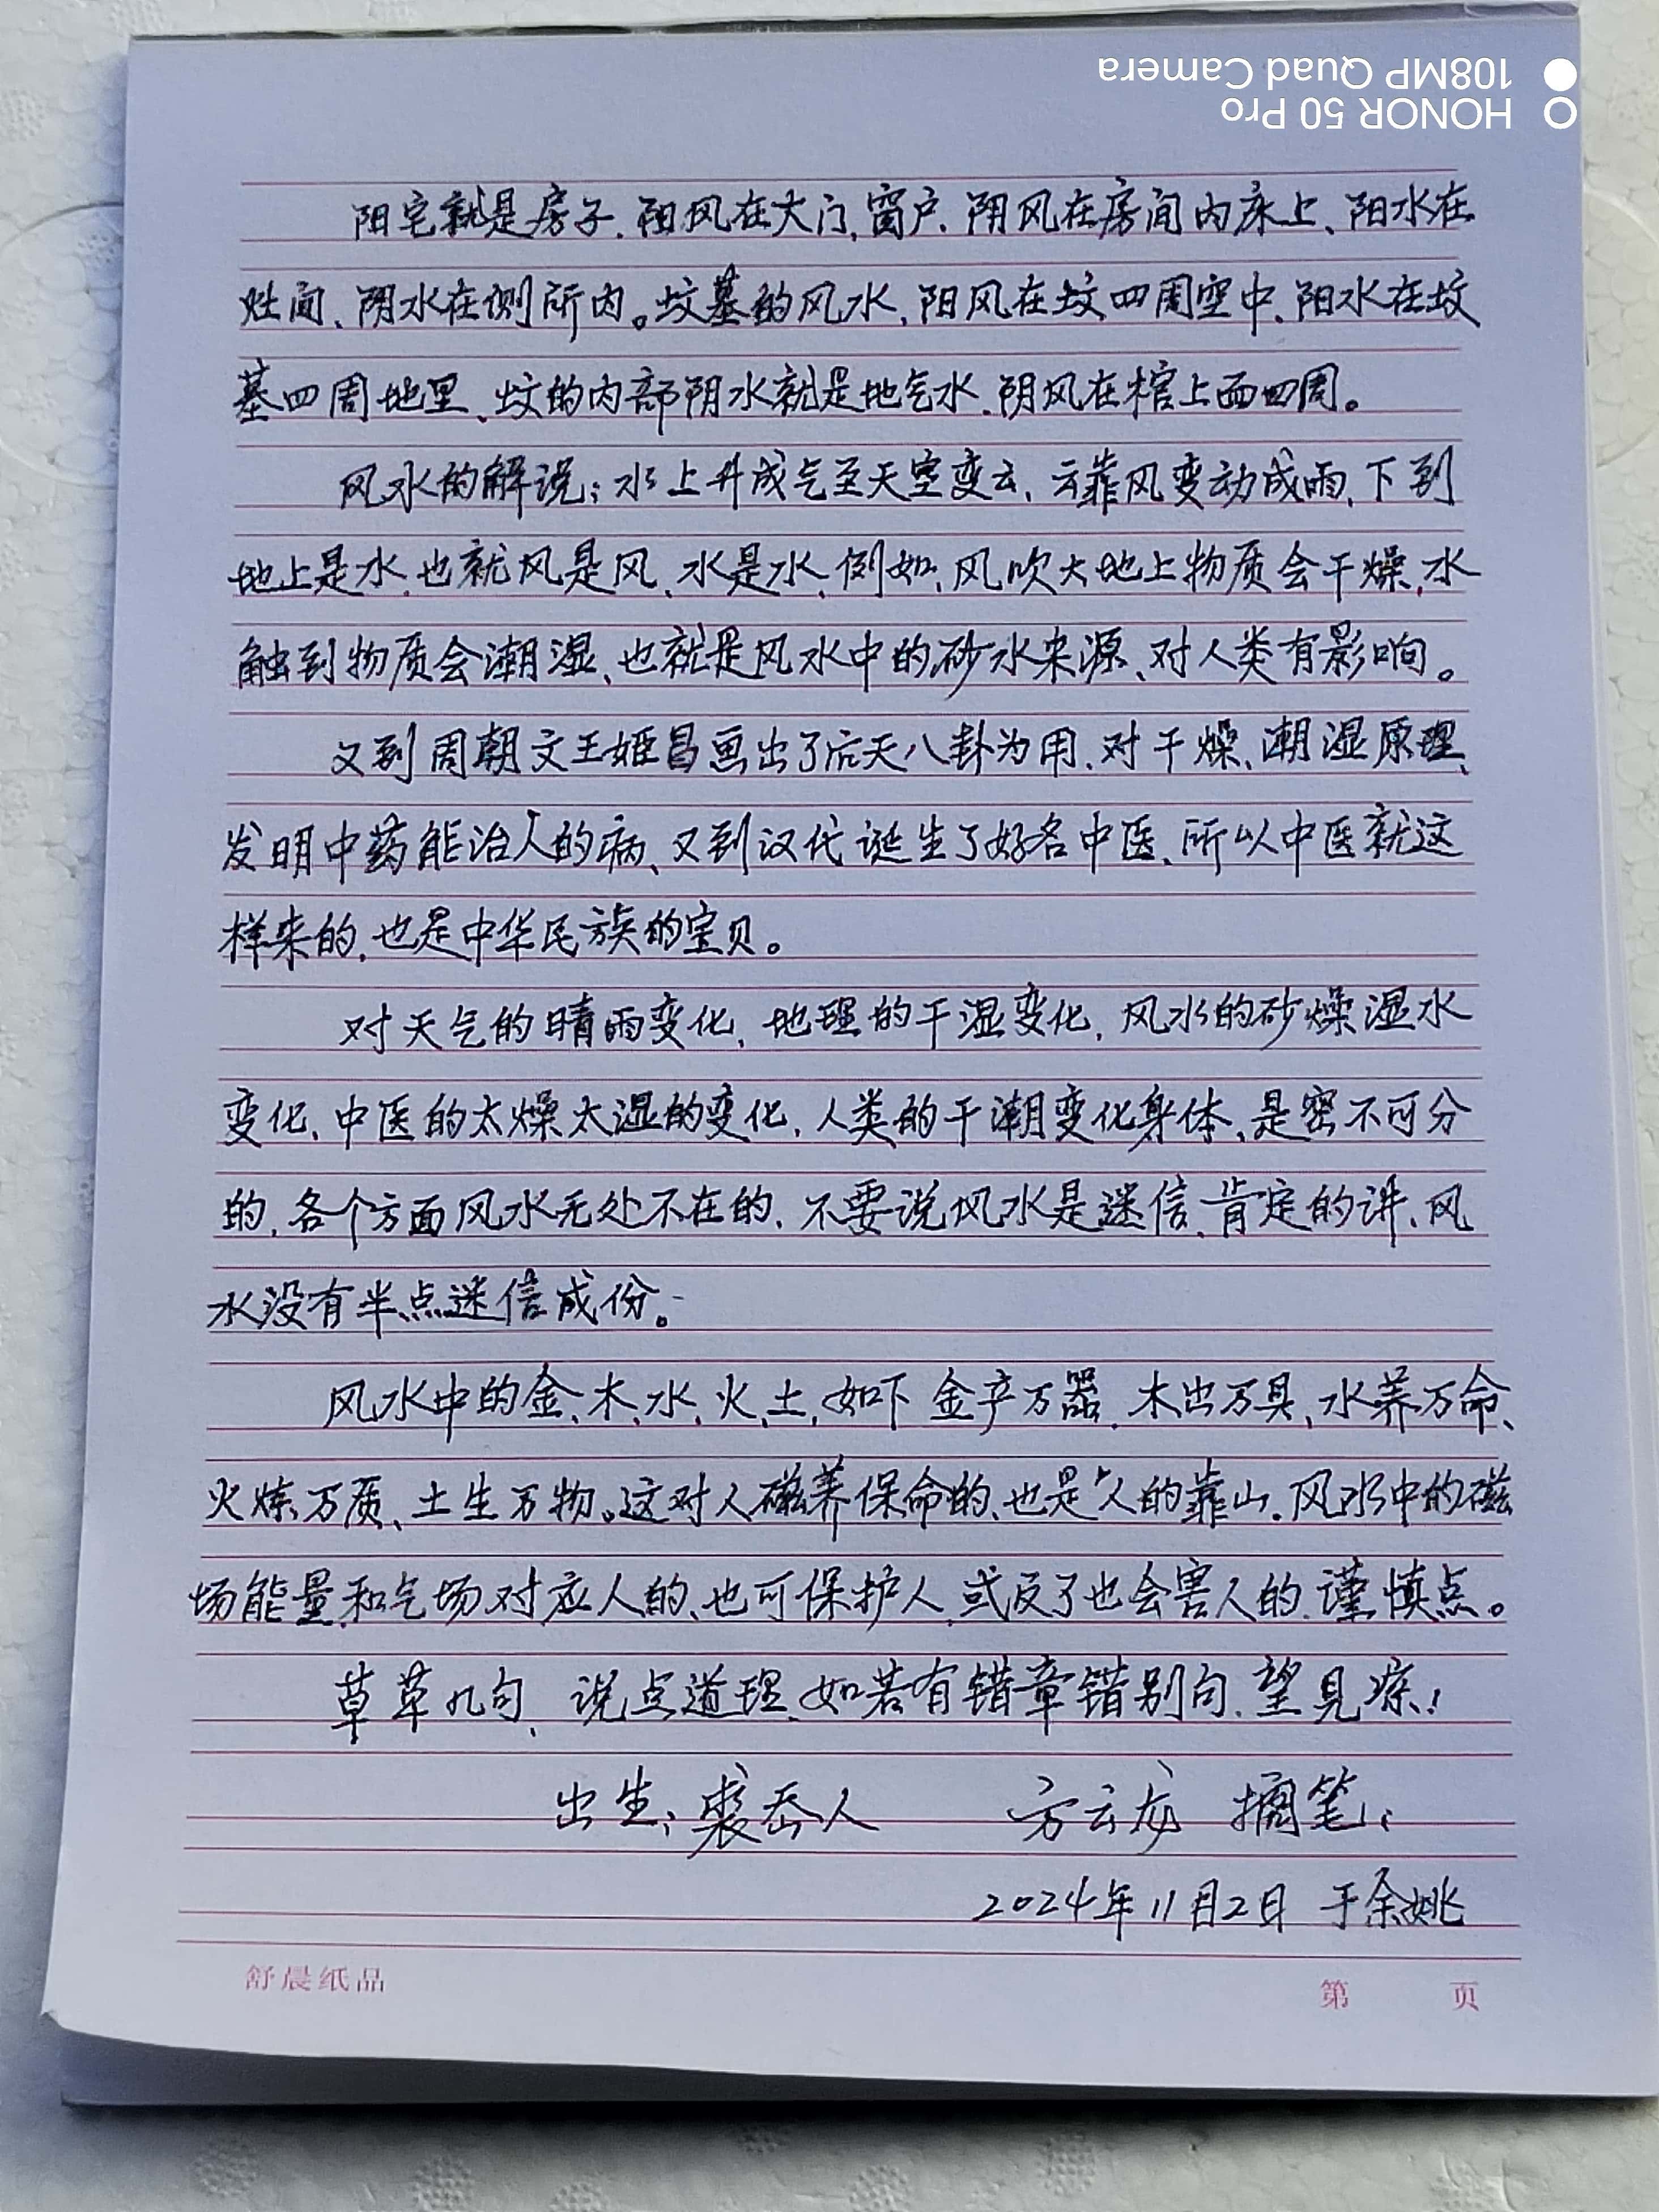 HONOR 50 Pro
108MP Quad Camera
阳宅就是房子.阳风在大门,窗户.阴风在房间内床上、阳水在
灶间、阴水在侧所内。坟墓的风水,阳风在坟四周空中.阳水在坟
墓四周地里、坟的内部阴水就是地气水.阴风在棺上面四周。
风水的解说:水上升成气至天空变云、云靠风变动成雨,下到
地上是水.也就风是风、水是水,例如、风吹大地上物质会干燥,水
触到物质会潮湿、也就是风水中的砂水来源、对人类有影响。
又到周朝文王姬昌画出了后天八卦为用.对干燥、潮湿原理、
发明中药能治人的病、又到汉代诞生了好各中医、所以中医就这
样来的,也是中华民族的宝贝。
对天气的晴雨变化,地理的干湿变化,风水的砂燥湿水
变化、中医的太燥太湿的变化,人类的干潮变化身体、是密不可分
的,各个方面风水无处不在的,不要说风水是迷信,肯定的讲、风
水没有半点迷信成份。
风水中的金、木、水、火、土,如下金产万器.木出万具、水养万命、
火炼万质、土生万物。这对人磁养保命的、也是人的靠山.风水中的磁
场能量和气场对应人的、也可保护人,或反了也会害人的.谨慎点。
草草几句、说点道理、如若有错章错别句.望见凉!
出生:裘岙人 方云龙 搁笔:
2024年11月2日 于余姚
舒晨纸品 第 页